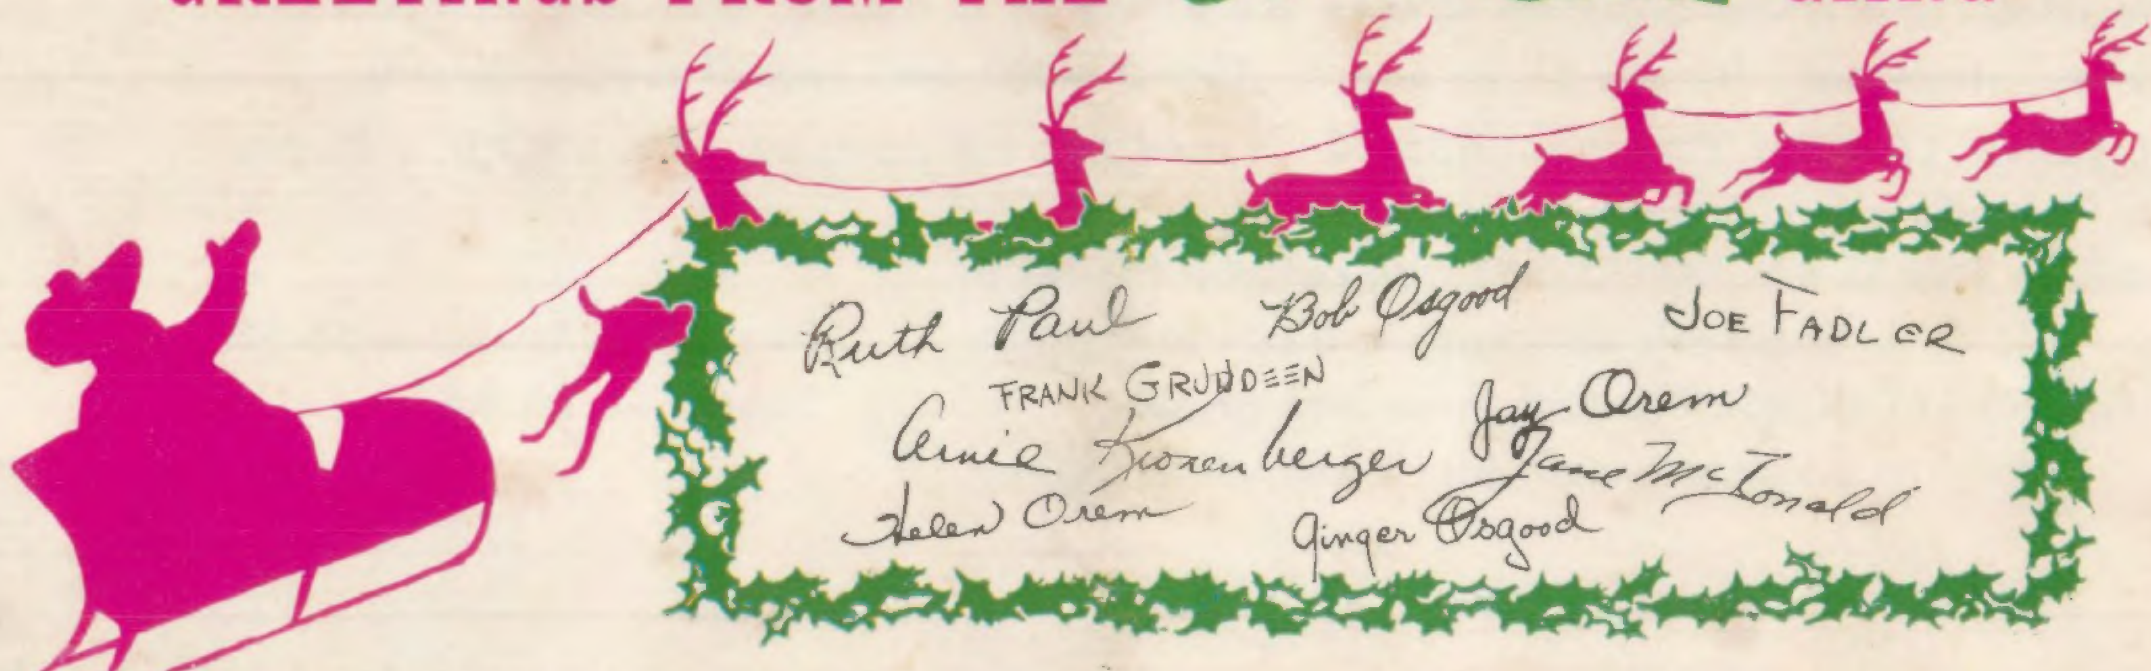 GREETINGS FROM THE
Ruth Paul Bob Osgood JOE FADLER
FRANK GRUNDEEN
Jay Orem
Arnie Kronenberger
Jane McDonald
Helen Orem Ginger Osgood